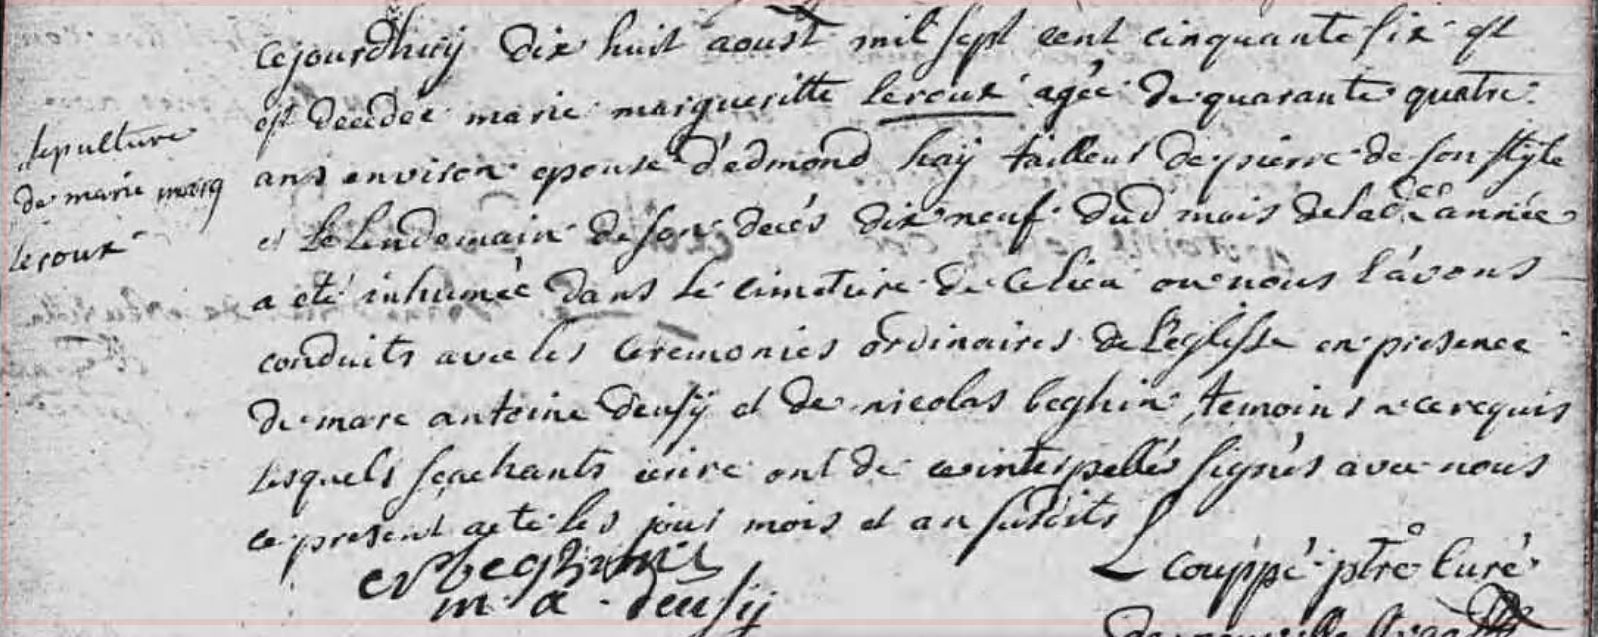 sepulture
de marie marg
Leroux
cejourdhuÿ dix huit aoust mil sept cent cinquante six est
est decedée marie margueritte Leroux agée de quarante quatre
ans environ epouse d'edmond haÿ tailleur de pierre de son stÿle
et Le Lendemain de son decés dix neuf dud mois de lad année
a eté inhumée dans le cimetiere de ce lieu ou nous l'avons
conduits avec les Ceremonies ordinaires de L'eglisse en presence
de marc antoine deusÿ et de nicolas beghin temoins a ce requis
lesquels sçachants ecrire ont de ce interpellés signés avec nous
ce present acte les jour mois et an susdits
beghin
m. a. deusÿ
L Couppé ptre Curé
de neuville